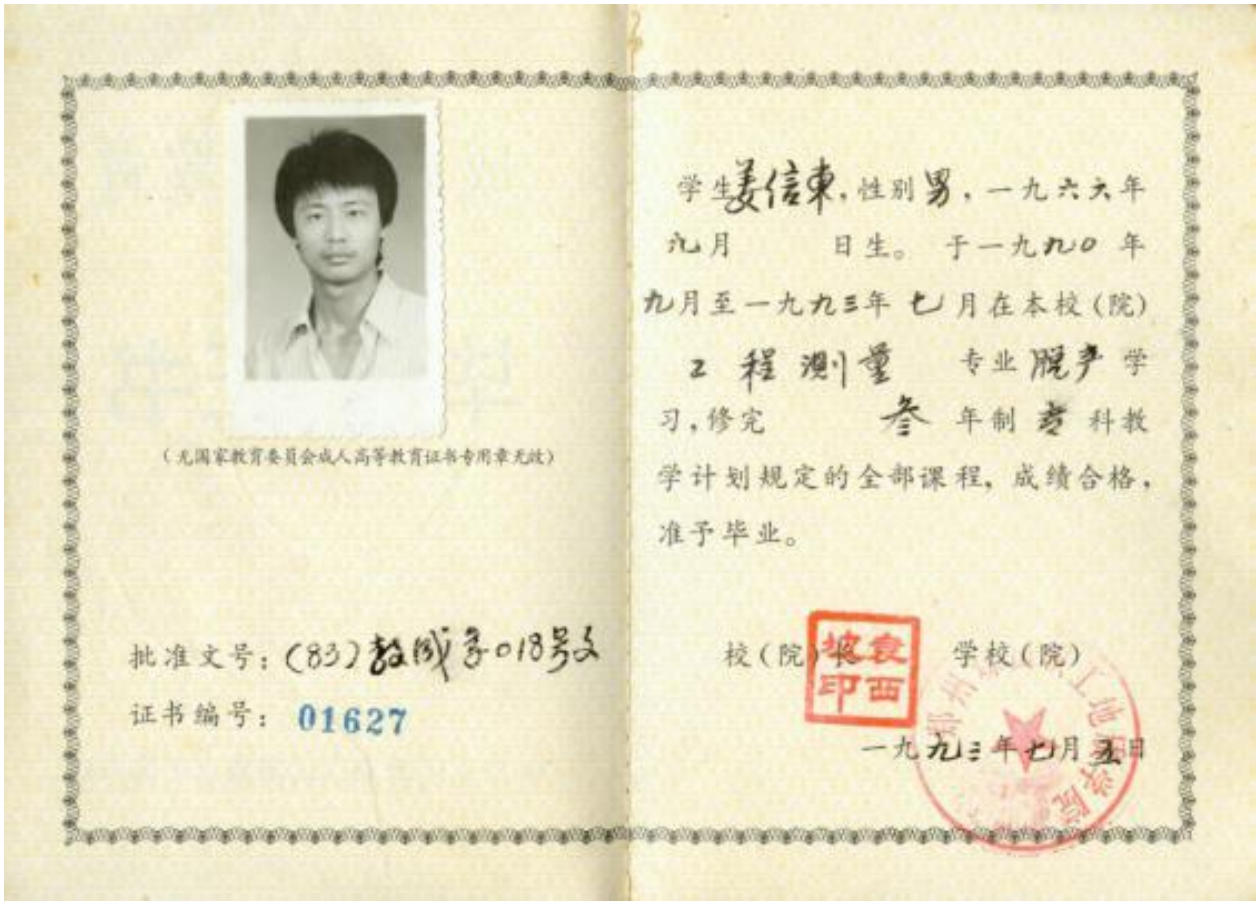 (无国家教育委员会成人高等教育证书专用章无效)
批准文号：(83)教成字018号文
证书编号： 01627
学生姜信東，性别男，一九六六年
九月 日生。于一九九〇年
九月至一九九三年七月在本校(院)
工程测量 专业脱产学
习，修完 叁 年制 专 科教
学计划规定的全部课程，成绩合格，
准予毕业。
校(院)长 学校(院)
袁西坡印
一九九三年七月五日